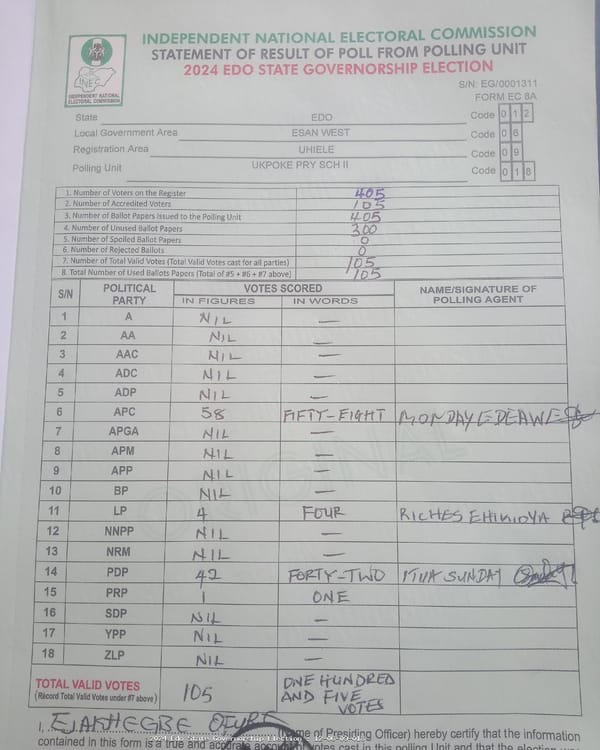 INDEPENDENT NATIONAL ELECTORAL COMMISSION
STATEMENT OF RESULT OF POLL FROM POLLING UNIT
2024 EDO STATE GOVERNORSHIP ELECTION
INEC
INDEPENDENT NATIONAL
ELECTORAL COMMISSION
S/N: EG/0001311
FORM EC 8A
State EDO Code 0 1 2
Local Government Area ESAN WEST Code 0 6
Registration Area UHIELE Code 0 9
Polling Unit UKPOKE PRY SCH II Code 0 1 8
1. Number of Voters on the Register 405
2. Number of Accredited Voters 105
3. Number of Ballot Papers Issued to the Polling Unit 405
4. Number of Unused Ballot Papers 300
5. Number of Spoiled Ballot Papers 0
6. Number of Rejected Ballots 0
7. Number of Total Valid Votes (Total Valid Votes cast for all parties) 105
8. Total Number of Used Ballots Papers (Total of #5 + #6 + #7 above) 105
S/N POLITICAL PARTY VOTES SCORED NAME/SIGNATURE OF POLLING AGENT
IN FIGURES IN WORDS
1 A NIL —
2 AA NIL —
3 AAC NIL —
4 ADC NIL —
5 ADP NIL —
6 APC 58 FIFTY-EIGHT MONDAY EDEAWE
7 APGA NIL —
8 APM NIL —
9 APP NIL —
10 BP NIL —
11 LP 4 FOUR RICHES EHIKIOYA
12 NNPP NIL —
13 NRM NIL —
14 PDP 42 FORTY-TWO ITUA SUNDAY
15 PRP 1 ONE
16 SDP NIL —
17 YPP NIL —
18 ZLP NIL —
ORIGINAL
TOTAL VALID VOTES 105 ONE HUNDRED AND FIVE VOTES
(Record Total Valid Votes under #7 above)
I, (Name of Presiding Officer) hereby certify that the information
contained in this form is a true and accurate account of votes cast in this polling Unit and that the election
2024 Edo State Governorship Election